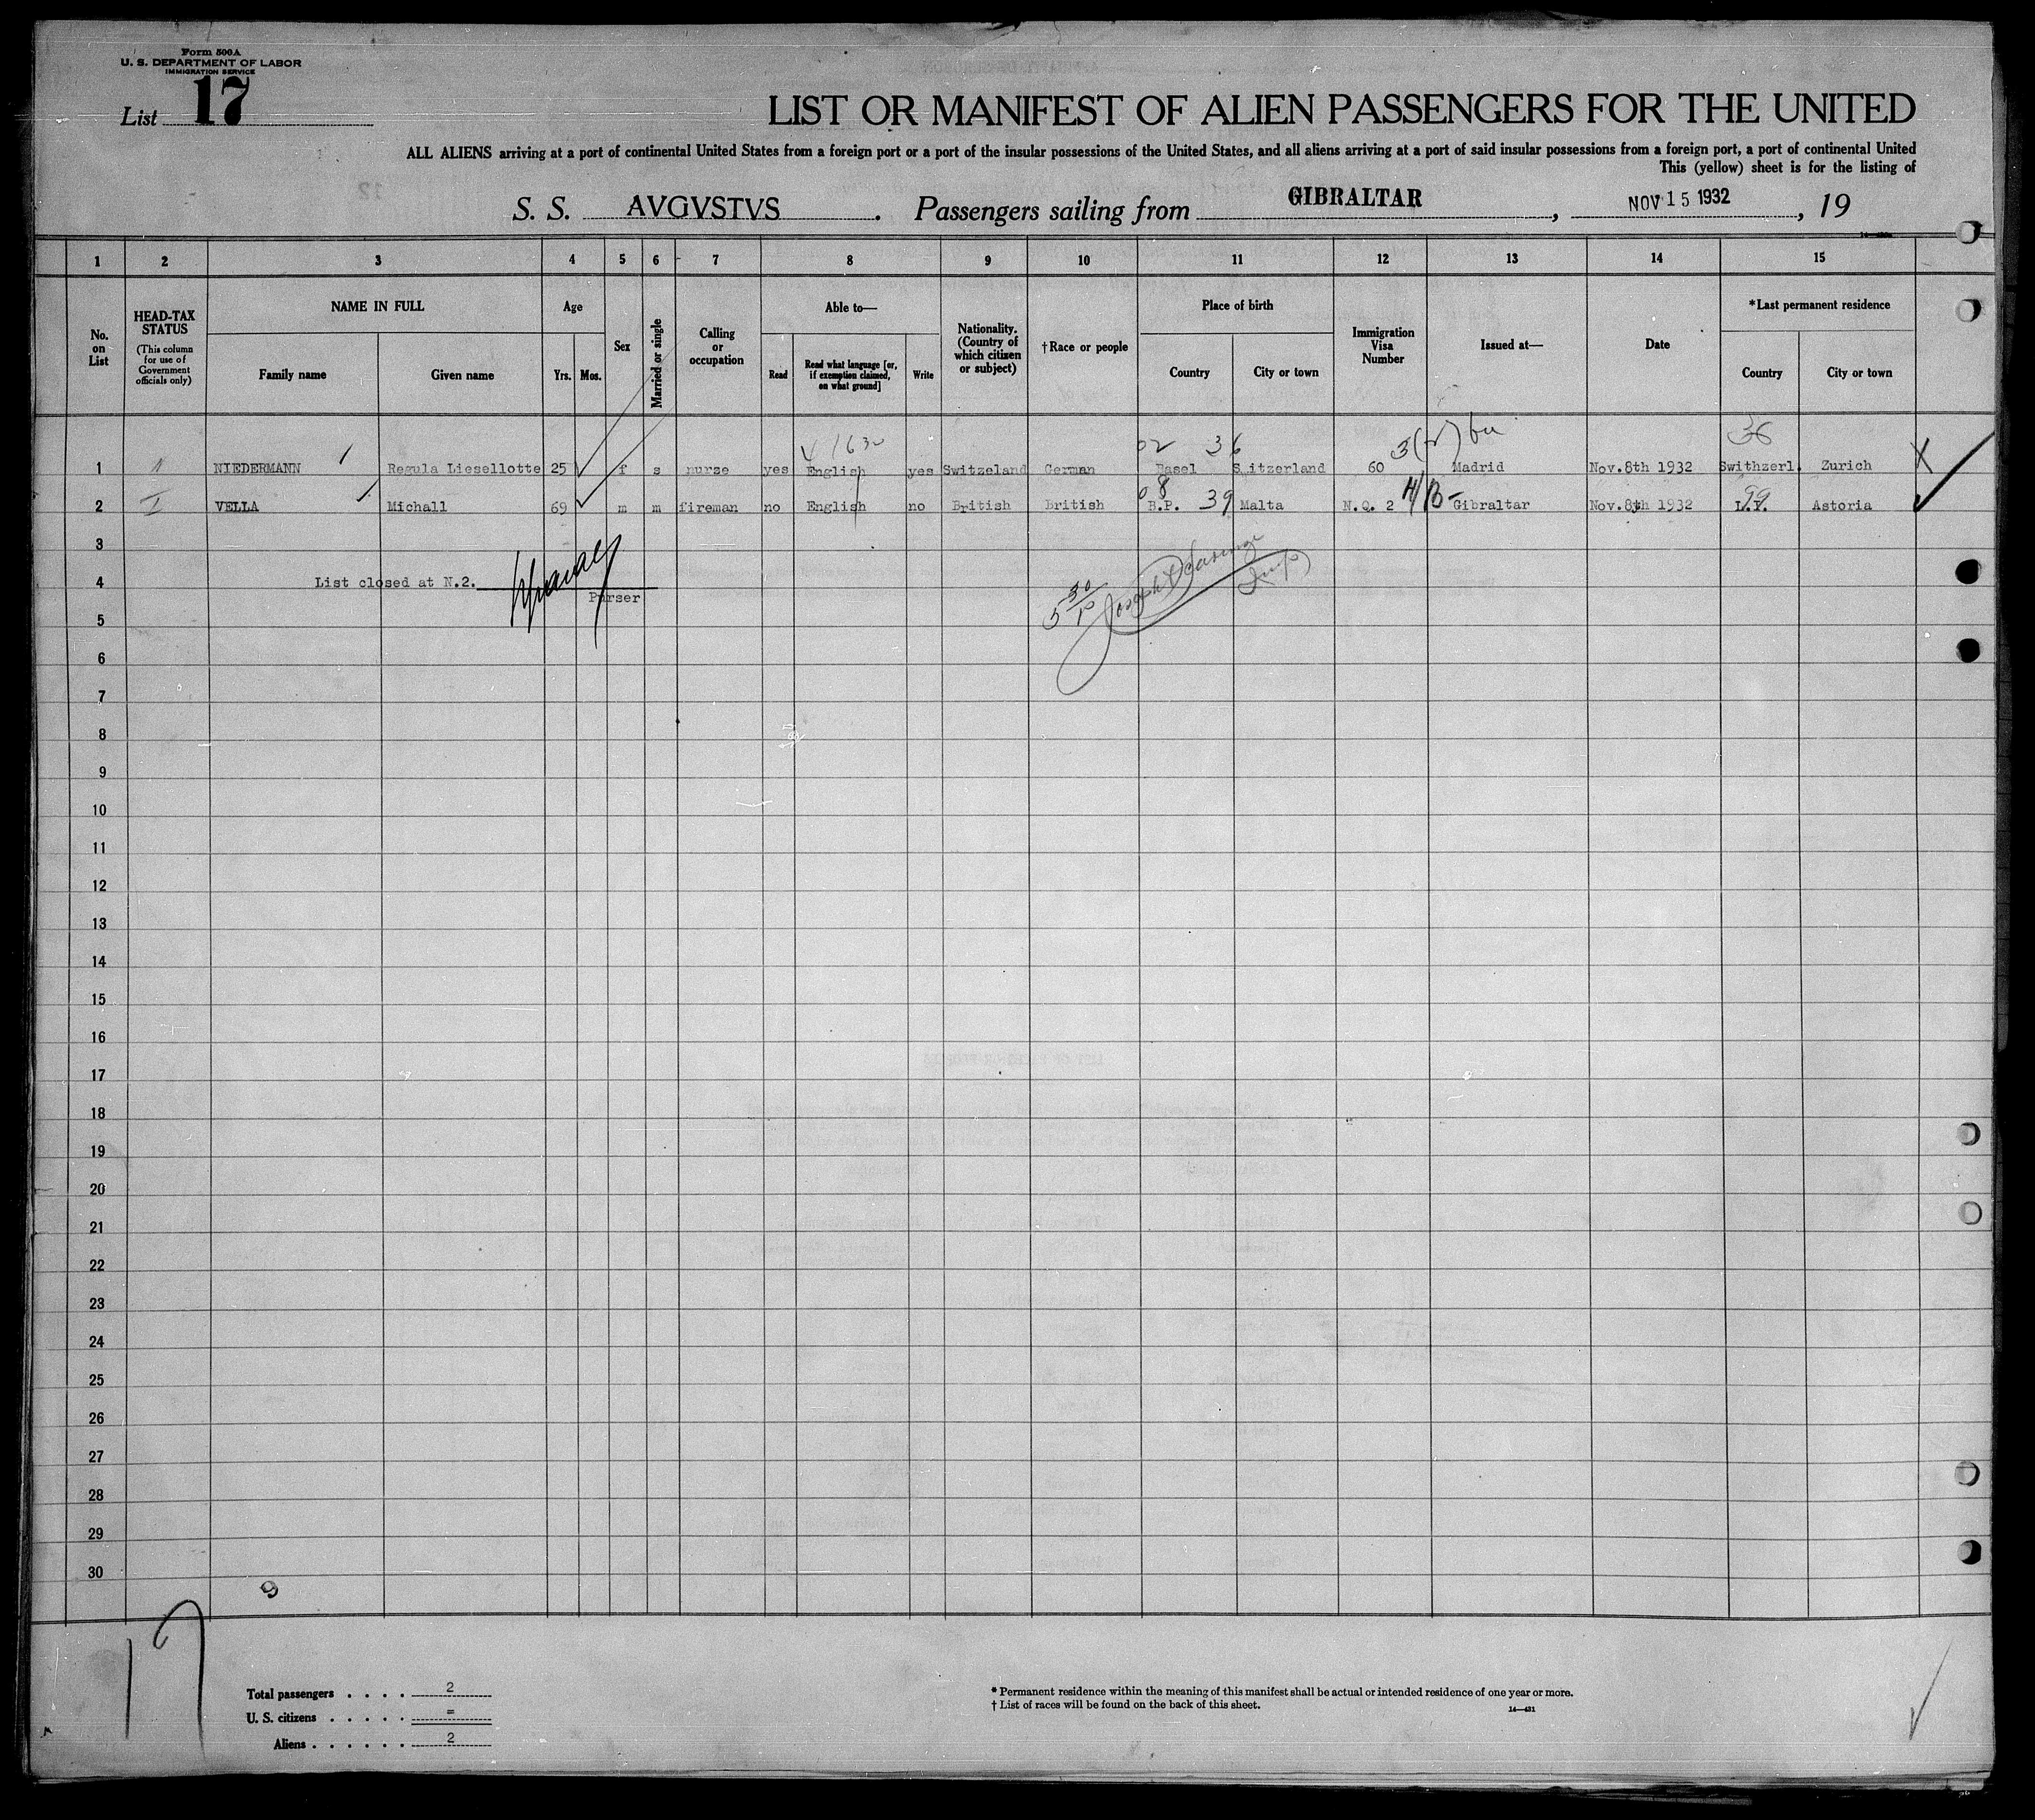 Form 500A
U. S. DEPARTMENT OF LABOR
IMMIGRATION SERVICE
List 17
LIST OR MANIFEST OF ALIEN PASSENGERS FOR THE UNITED
ALL ALIENS arriving at a port of continental United States from a foreign port or a port of the insular possessions of the United States, and all aliens arriving at a port of said insular possessions from a foreign port, a port of continental United
This (yellow) sheet is for the listing of
S. S. AVGVSTVS. Passengers sailing from GIBRALTAR, NOV 15 1932, 19
1 2 3 4 5 6 7 8 9 10 11 12 13 14 15
No. on List
HEAD-TAX STATUS
(This column for use of Government officials only)
NAME IN FULL
Family name
Given name
Age
Yrs. Mos.
Sex
Married or single
Calling or occupation
Able to—
Read
Read what language [or, if exemption claimed, on what ground]
Write
Nationality. (Country of which citizen or subject)
†Race or people
Place of birth
Country
City or town
Immigration Visa Number
Issued at—
Date
*Last permanent residence
Country
City or town
02 36 36
1 NIEDERMANN Regula Liesellotte 25 f s nurse yes English yes Switzeland German Basel S itzerland 60 Madrid Nov.8th 1932 Swithzerl. Zurich X
08 39 99
2 VELLA Michall 69 m m fireman no English no British British B.P. Malta N.Q. 2 Gibraltar Nov.8th 1932 L.I. Astoria
3
4 List closed at N.2.
Purser
5 30
5
6
7
8
9
10
11
12
13
14
15
16
17
18
19
20
21
22
23
24
25
26
27
28
29
30
9
17
Total passengers . . . . 2
U. S. citizens . . . . . =
Aliens . . . . . . 2
* Permanent residence within the meaning of this manifest shall be actual or intended residence of one year or more.
† List of races will be found on the back of this sheet.
14—431